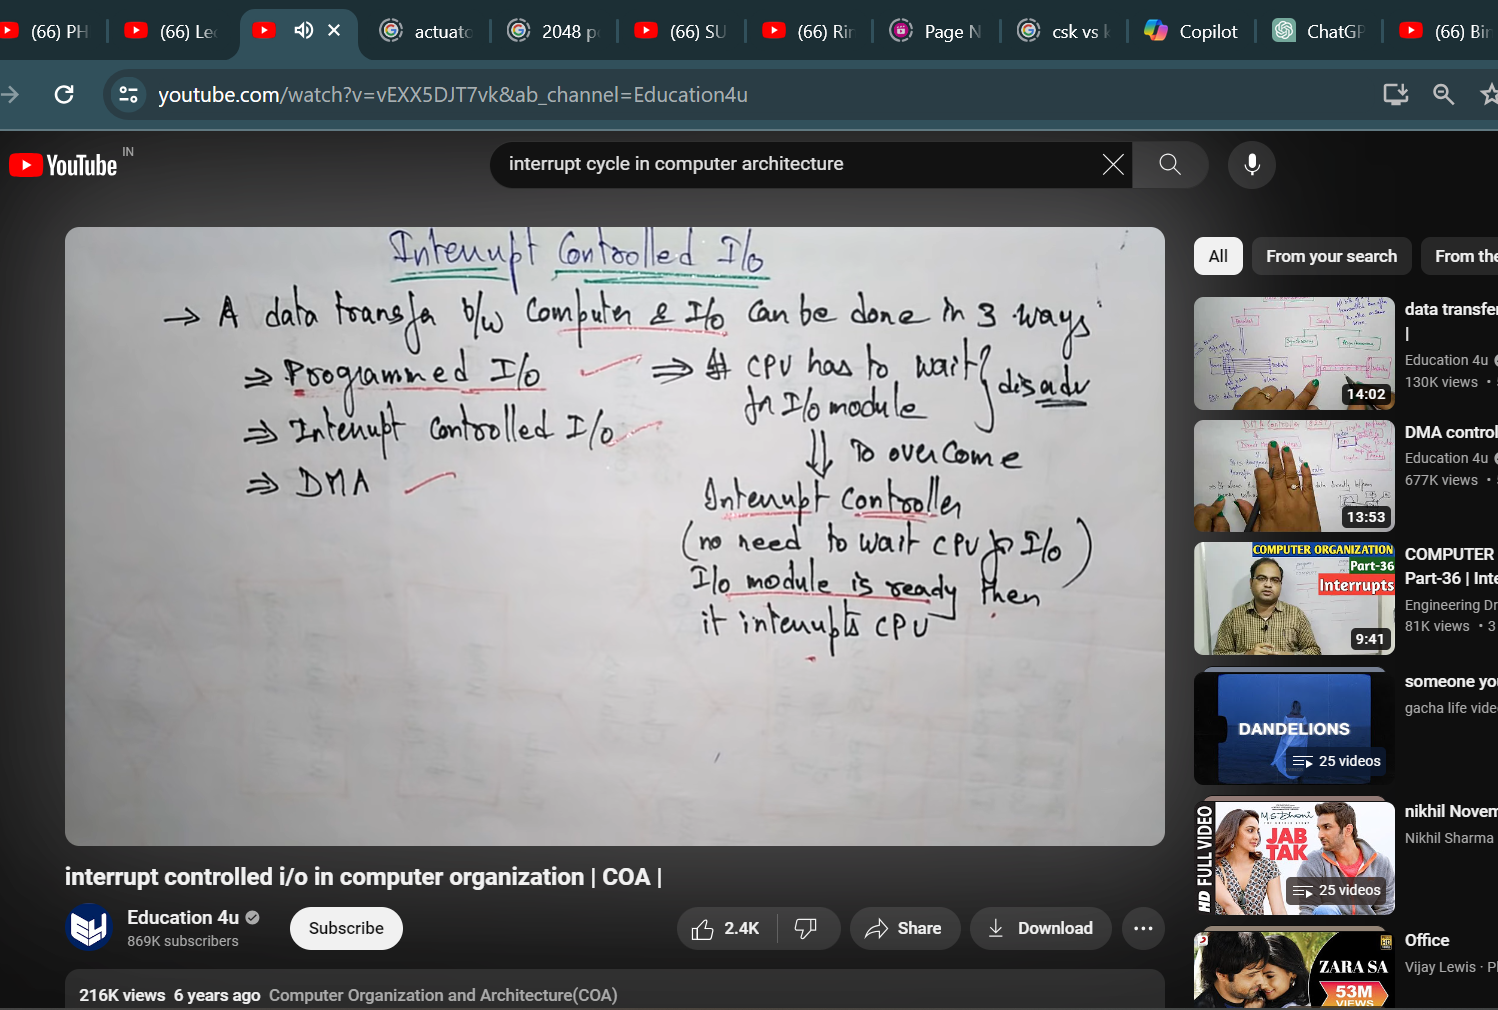 (66) PH
(66) Le
actuato
2048 p
(66) SU
(66) Rin
Page N
csk vs k
Copilot
ChatGP
(66) Bin
youtube.com/watch?v=vEXX5DJT7vk&ab_channel=Education4u
YouTube IN
interrupt cycle in computer architecture
All
From your search
From the
Interrupt Controlled I/o
→ A data transfer b/w Computer & I/o Can be done in 3 ways
⇒ Programmed I/o
⇒ Interrupt Controlled I/o
⇒ DMA
⇒ CPU has to wait
for I/o module
disadv
To overcome
Interrupt Controller
(no need to wait CPU for I/o)
I/o module is ready then
it interrupts CPU
interrupt controlled i/o in computer organization | COA |
Education 4u
869K subscribers
Subscribe
2.4K
Share
Download
216K views 6 years ago Computer Organization and Architecture(COA)
14:02
data transfer
|
Education 4u
130K views •
13:53
DMA control
Education 4u
677K views •
COMPUTER ORGANIZATION
Part-36
Interrupts
9:41
COMPUTER
Part-36 | Inte
Engineering Dr
81K views • 3
DANDELIONS
25 videos
someone yo
gacha life vide
HD FULL VIDEO
M.S.Dhoni
JAB
TAK
25 videos
nikhil Novem
Nikhil Sharma
ZARA SA
53M
VIEWS
Office
Vijay Lewis · Pl